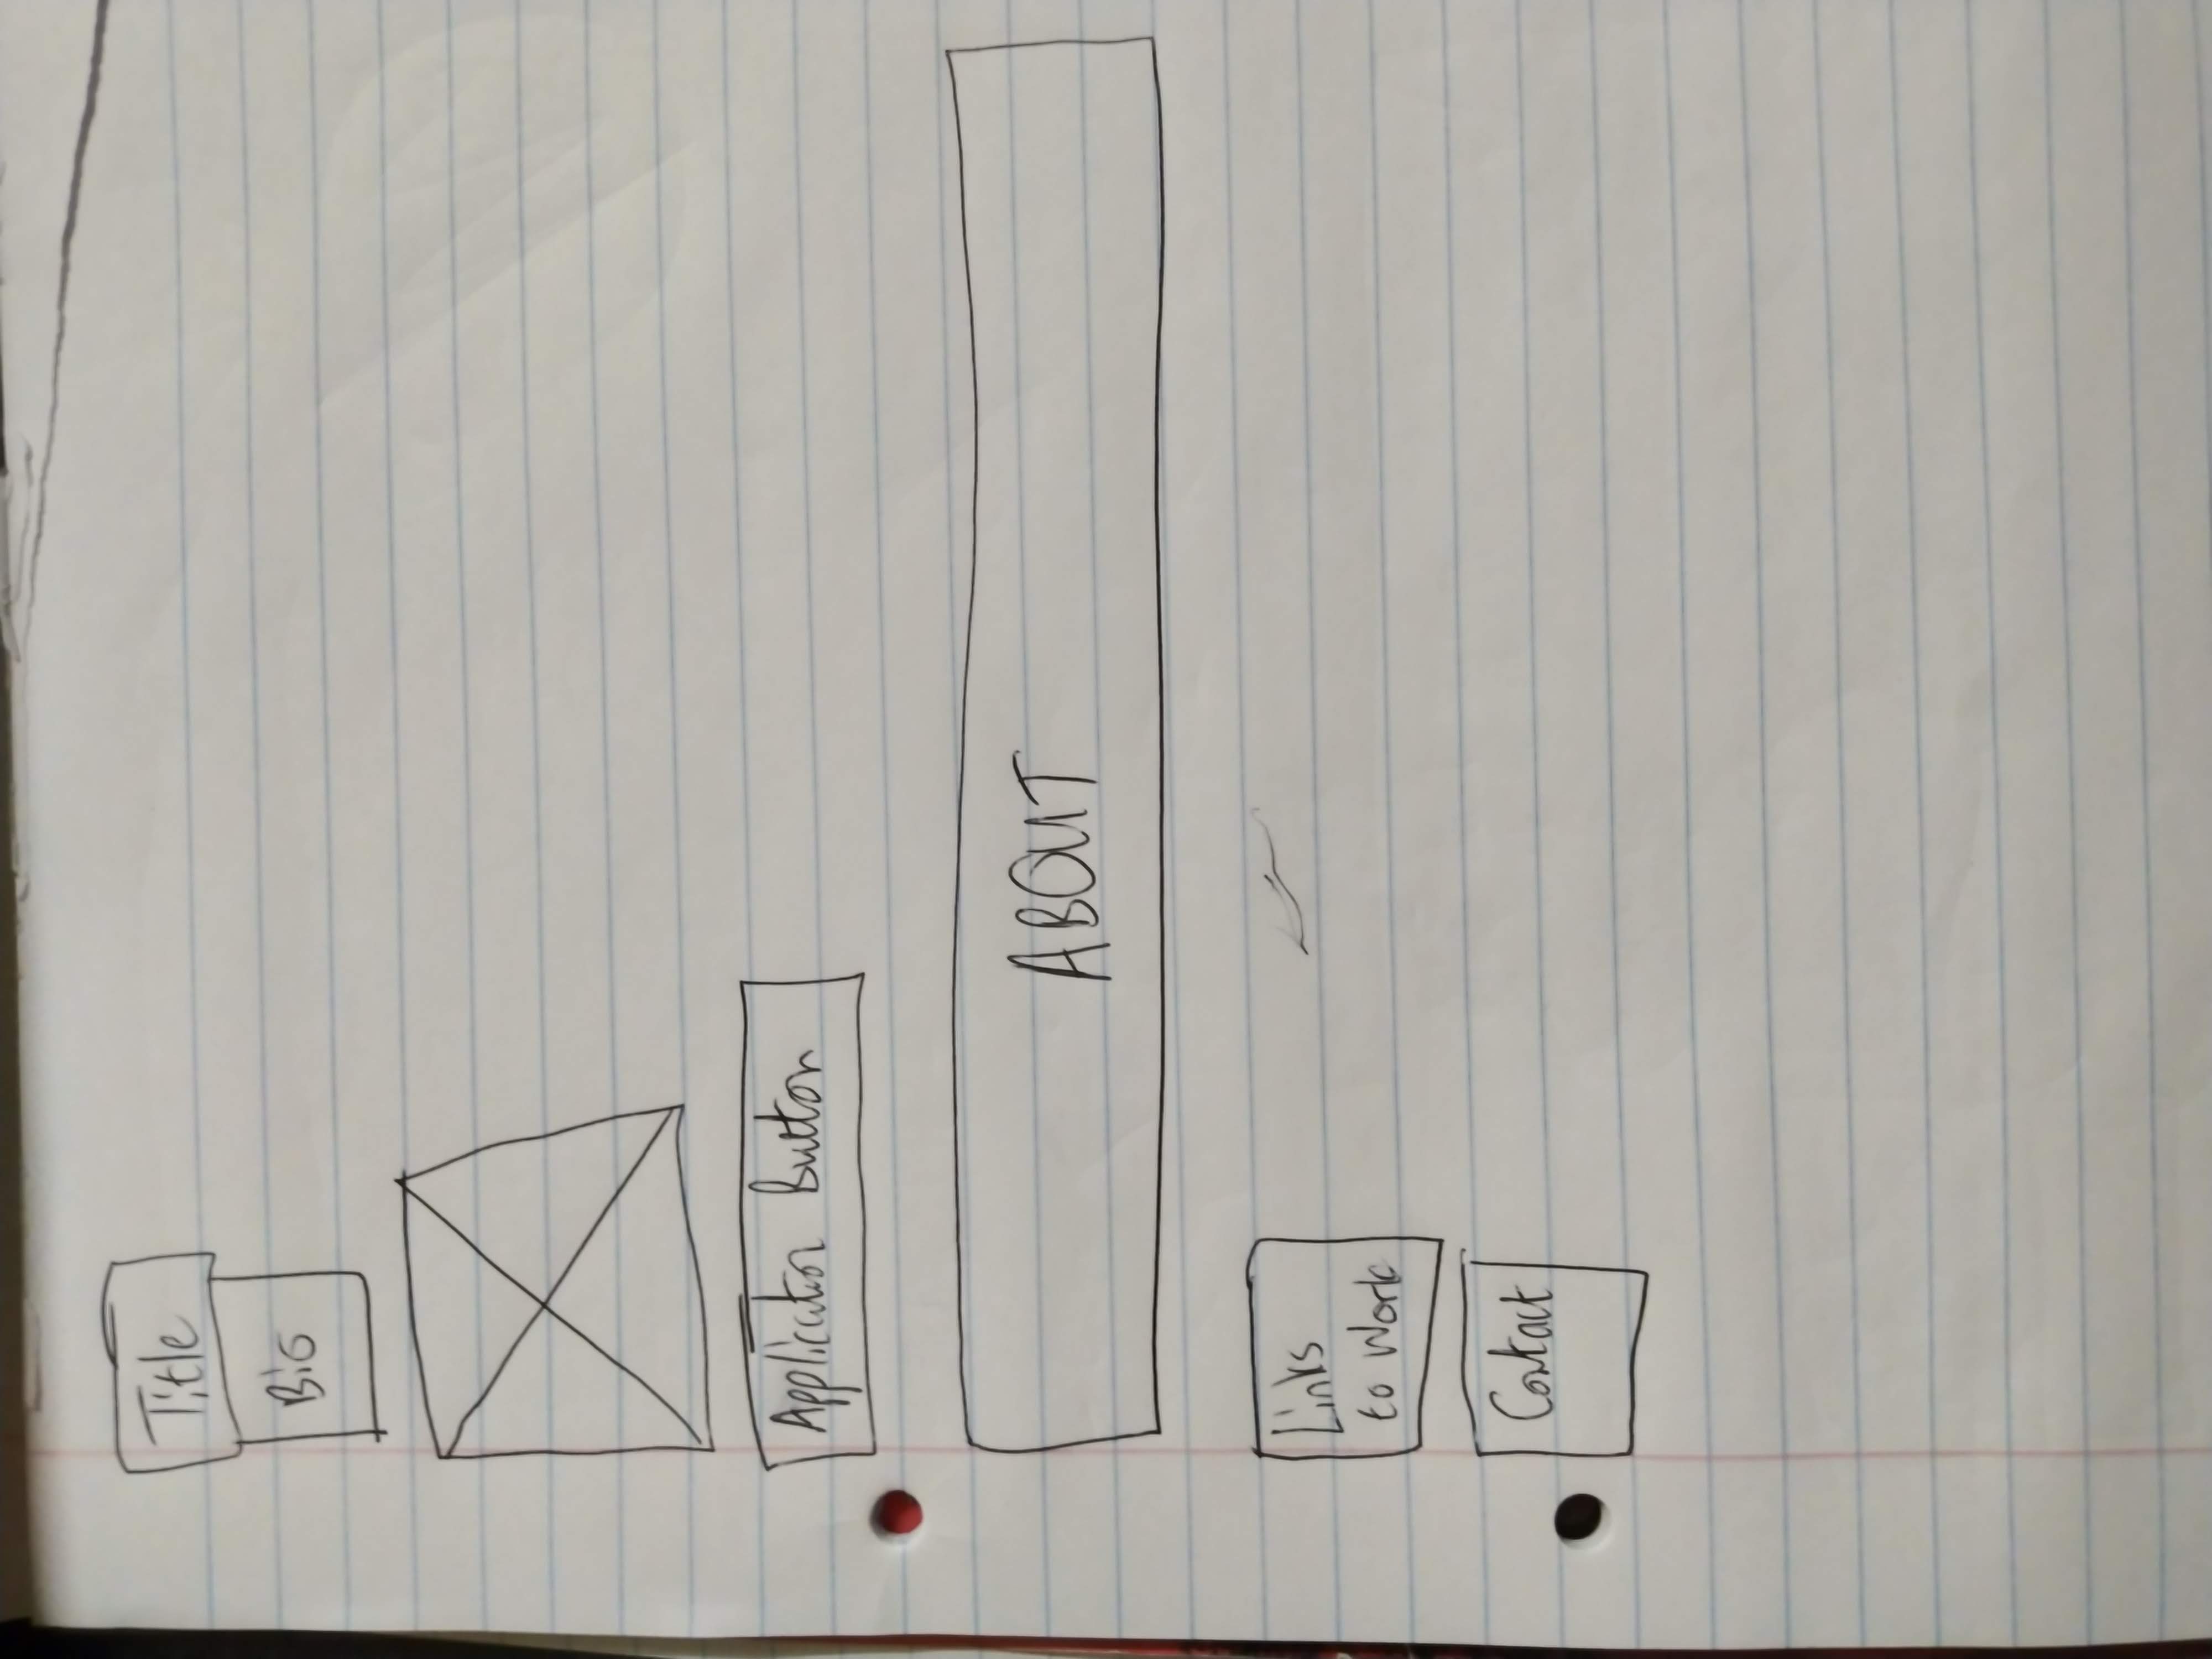 Title
Bio
Application Button
ABOUT
Links
to Work
Contact